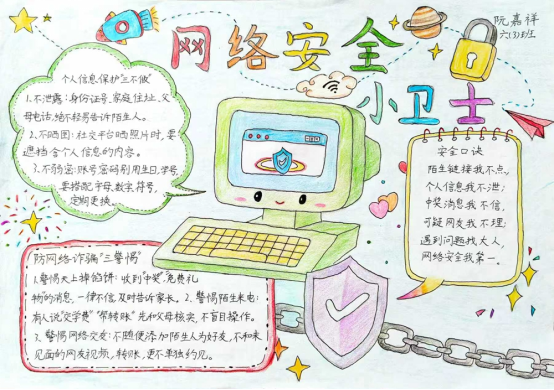 网络安全
小卫士
阮嘉祥
六(3)班
个人信息保护"三不做"
1.不泄露:身份证号、家庭住址、父
母电话,绝不轻易告诉陌生人。
2.不晒图:社交平台晒照片时,要
遮挡含个人信息的内容。
3.不弱密:账号密码别用生日、学号,
要搭配字母、数字、符号,
定期更换
安全口诀
陌生链接我不点,
个人信息我不泄;
中奖消息我不信,
可疑网友我不理;
遇到问题找大人,
网络安全我第一。
防网络诈骗"三警惕"
1.警惕天上掉馅饼:收到"中奖"、免费礼
物的消息,一律不信,及时告诉家长。2.警惕陌生来电:
有人说"交学费""帮转账"先和父母核实,不盲目操作。
3.警惕网络交友:不随便添加陌生人为好友,不和未
见面的网友视频,转账,更不单独约见。